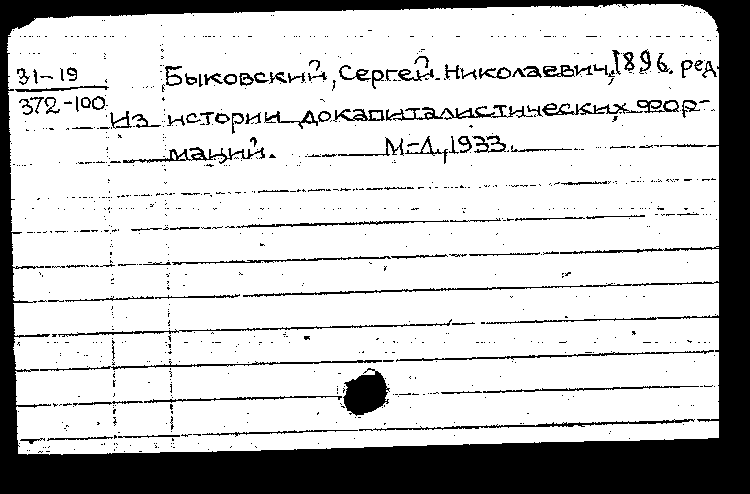 31-19
372-100
Быковский, Сергей Николаевич, 1896. ред.
Из истории докапиталистических фор-
маций. М-Л., 1933.